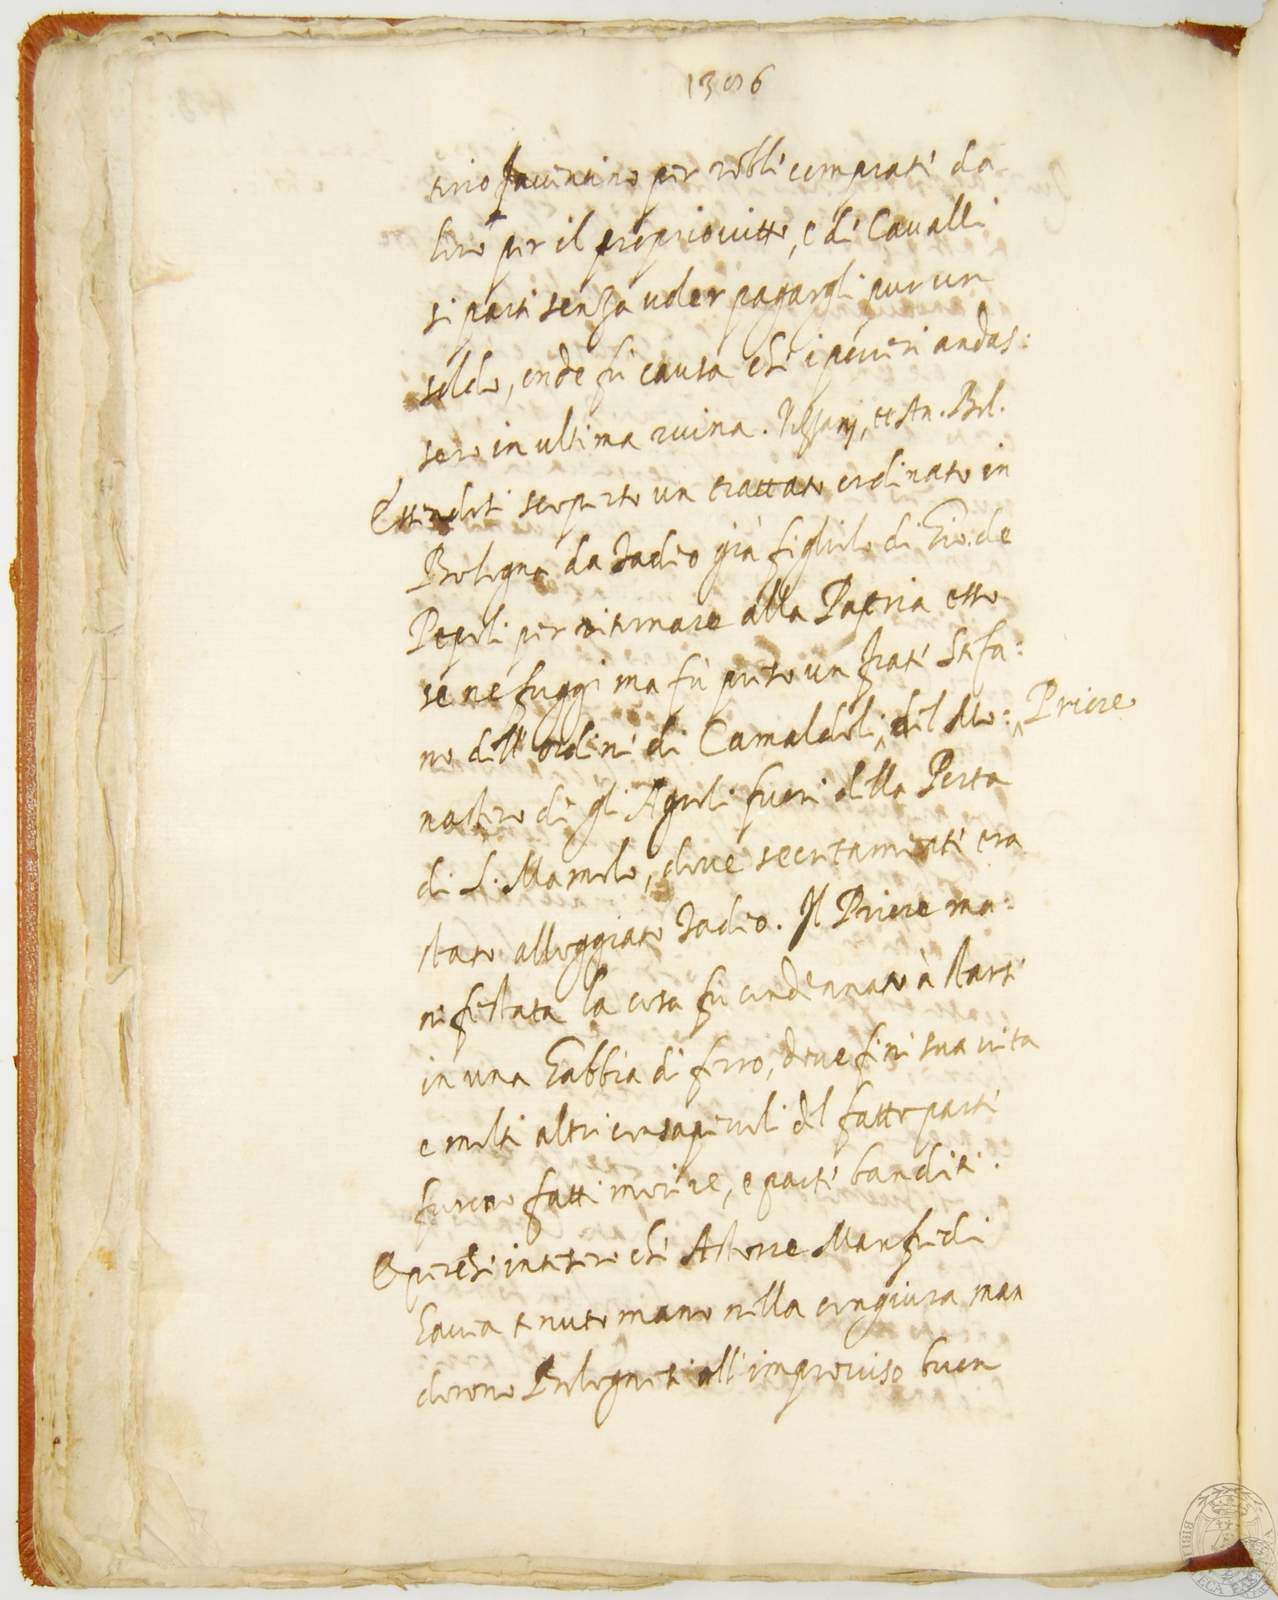 1386
torio faventino per robbe comprate da
loro per il proprio vitto, e di Cavalli
si parti senza voler pagargli pur un
soldo, onde fù causa che i poveri andas:
sero in ultima ruina. et An. Bol.
Essendosi scoperto un trattato ordinato in
Bologna da Tadio già figliolo di Gio: de
Pepoli per ritornare alla Patria esso
se ne fuggi ma fù preso un frate Stefa:
no dell' ordine di Camaldoli, ^ del Mo: ^ Priore
nastero de gli Agnoli fuori della Porta
di S. Mamolo, dove secretamente era
stato alloggiato Tadio. Il Priore ma:
nifestata la cosa fù condennato à stare
in una Gabbia di ferro, dove finì sua vita
e molti altri consapevoli del fatto parte
furono fatti morire, e parte banditi.
E perche intesero che Astorre Manfredi
havea tenuto mano nella congiura man
dorono Bolognesi all' improviso buon